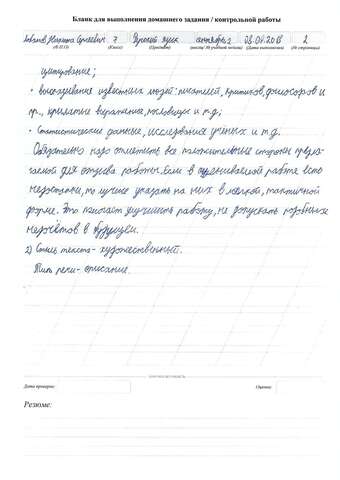 Бланк для выполнения домашнего задания / контрольной работы
Никита Сергеевич 7 Русский язык 03.04.2018 2
(Ф.И.О) (Класс) (Предмет) (Дата выполнения) (№ страницы)
цитирование;
• высказывания известных людей: писателей, критиков, философов и
пр., крылатые выражения, пословицы и т.д.;
• Статистические данные, исследования учёных и т.д.
Обязательно надо отметить все положительные стороны предла-
гаемой для отзыва работы. Если в оцениваемой работе есть
недостатки, то лучше указать на них в мягкой, тактичной
форме. Это помогает улучшить работу, не допускать подобных
недочётов в будущем.
2) Стиль текста - художественный.
Тип речи - описание.
Дата проверки: Оценка:
Резюме: